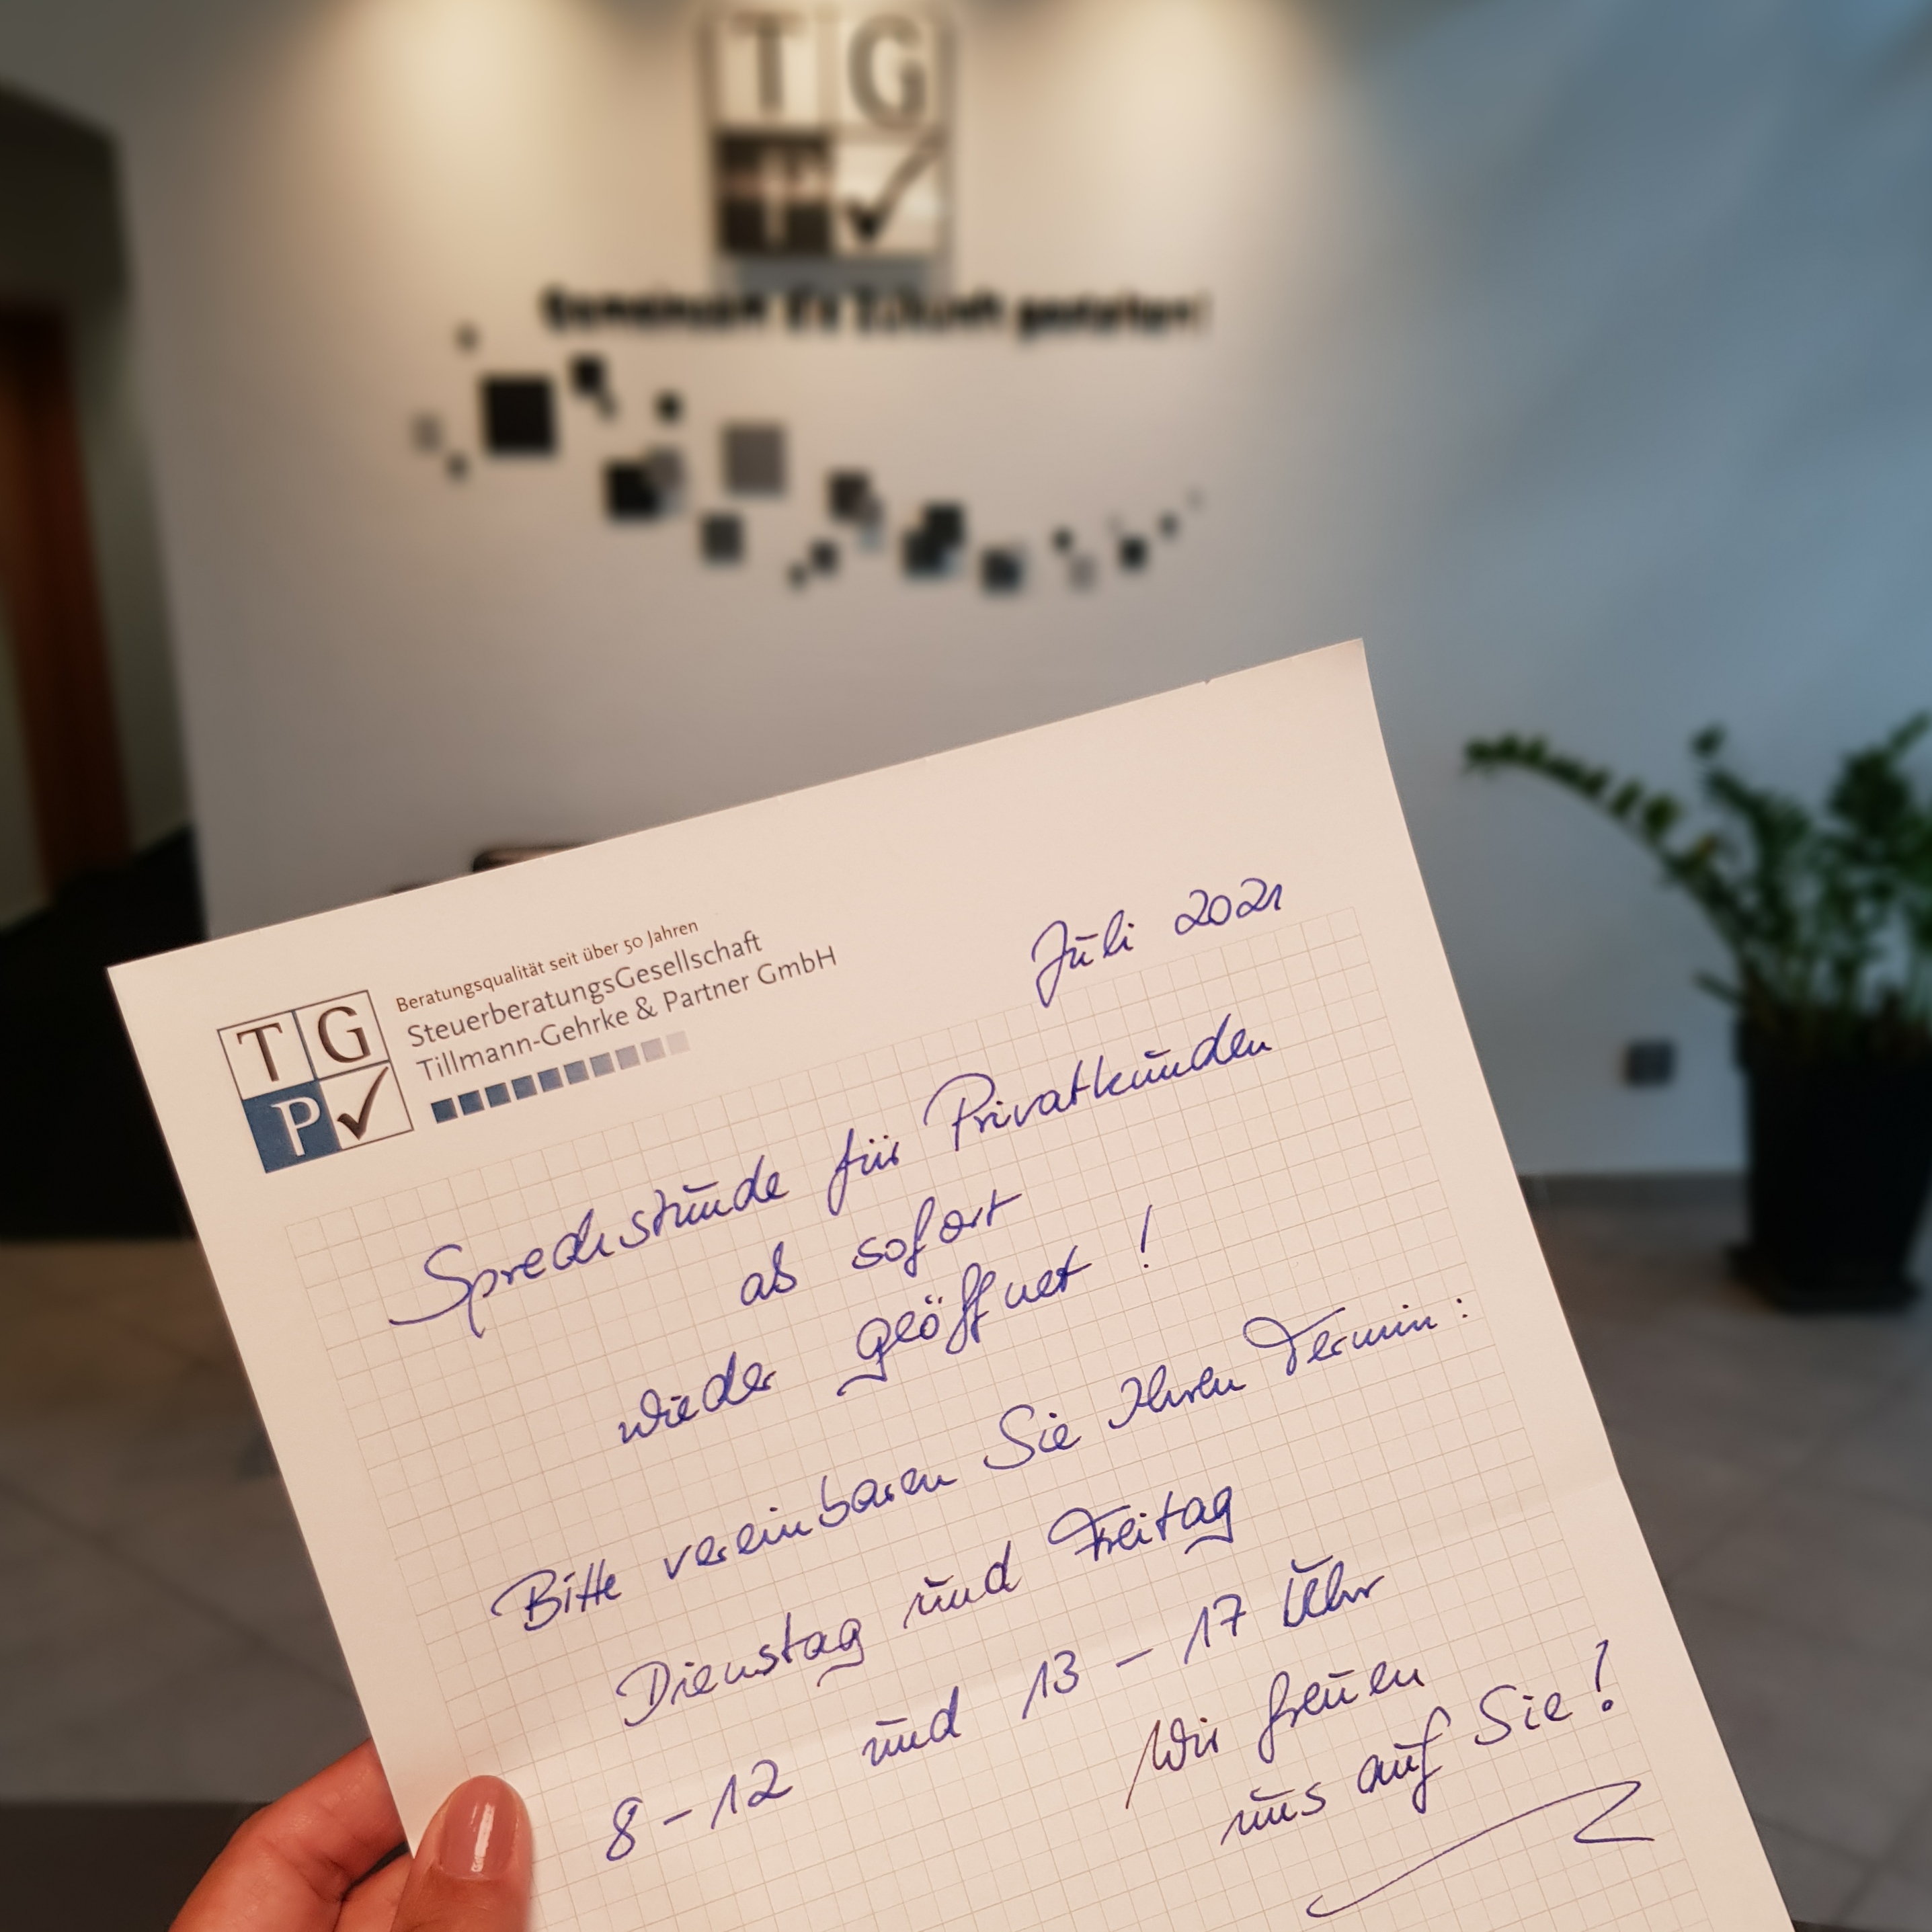 T G
Gemeinsam die Zukunft gestalten!
Beratungsqualität seit über 50 Jahren
SteuerberatungsGesellschaft
Tillmann-Gehrke & Partner GmbH
T G
P
Juli 2021
Sprechstunde für Privatkunden
ab sofort
wieder geöffnet !
Bitte vereinbaren Sie Ihren Termin :
Dienstag und Freitag
8 - 12 und 13 - 17 Uhr
Wir freuen
uns auf Sie !